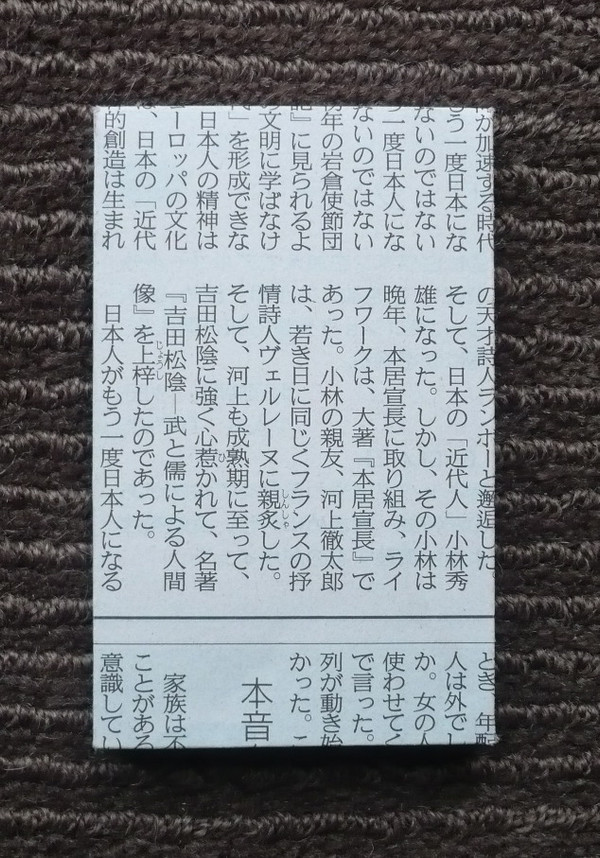 が加速する時代
もう一度日本にな
ないのではない
う一度日本人にな
ないのではない
初年の岩倉使節団
記』に見られるよ
の文明に学ばなけ
代」を形成できな
日本人の精神は
ーロッパの文化
は、日本の「近代
的創造は生まれ
の天才詩人ランボーと邂逅した。
そして、日本の「近代人」小林秀
雄になった。しかし、その小林は
晩年、本居宣長に取り組み、ライ
フワークは、大著『本居宣長』で
あった。小林の親友、河上徹太郎
は、若き日に同じくフランスの抒
情詩人ヴェルレーヌに親炙した。
しんしゃ
そして、河上も成熟期に至って、
吉田松陰に強く心惹かれて、名著
ひ
『吉田松陰―武と儒による人間
像』を上梓したのであった。
じょうし
日本人がもう一度日本人になる
とき、年配
人は外でし
か。女の人
使わせてく
で言った。
列が動き始
かった。こ
本音
家族は不
ことがある
意識してい